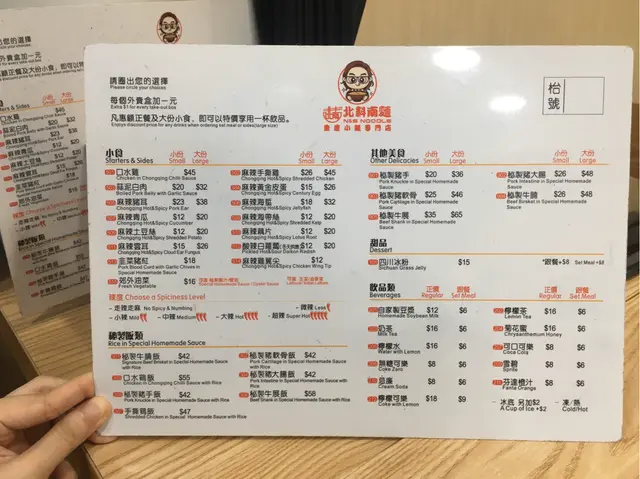 請圈出您的選擇
Please circle your choices
每個外賣盒加一元
Extra $1 for every take-out box
凡惠顧正餐及大份小食，即可以特價享用一杯飲品。
Enjoy discount price for any drinks when ordering set meal or sides(large size)
北斜南麵
NSE NOODLE
重慶小麵專門店
枱號
小食
Starters & Sides
小份 Small 大份 Large
口水雞 $45
Chicken in Chongqing Chilli Sauce
蒜泥白肉 $20 $32
Boiled Pork Belly with Garlic Sauce
麻辣豬耳 $23 $38
Chongqing Hot&Spicy Pork Ear
麻辣青瓜 $12 $20
Chongqing Hot&Spicy Cucumber
麻辣土豆絲 $12 $20
Chongqing Hot&Spicy Shredded Potato
麻辣雲耳 $15 $26
Chongqing Hot&Spicy Cloud Ear Fungus
韭菜豬紅 $18
Pork Blood Curd with Garlic Chives in Special Homemade Sauce
郊外油菜 $16
Fresh Vegetable
小份 Small 大份 Large
麻辣手撕雞 $26 $48
Chongqing Hot&Spicy Shredded Chicken
麻辣黃金皮蛋 $15 $26
Chongqing Hot&Spicy Century Egg
麻辣海蜇 $18 $32
Chongqing Hot&Spicy Jellyfish
麻辣海帶絲 $12 $20
Chongqing Hot&Spicy Kelp
麻辣藕片 $12 $20
Chongqing Hot&Spicy Lotus Root
酸辣白蘿蔔 $12 $20
Pickled Hot&Sour Daikon Radish
麻辣雞翼尖 $12
Chongqing Hot&Spicy Chicken Wing Tip
辣度 Choose a Spiciness Level
- 走辣走麻 No Spicy & Numbing
- 微辣 Less
- 小辣 Mild
- 中辣 Medium
- 大辣 Hot
- 超辣 Super Hot
秘製飯類
Rice in Special Homemade Sauce
秘製牛腩飯 $42
Signature Beef Brisket in Special Homemade Sauce with Rice
口水雞飯 $55
Chicken in Chongqing Chilli Sauce with Rice
秘製豬手飯 $42
Pork Knuckle in Special Homemade Sauce with Rice
手撕雞飯 $47
Shredded Chicken in Special Homemade Sauce with Rice
秘製豬軟骨飯 $42
Pork Cartilage in Special Homemade Sauce with Rice
秘製豬大腸飯 $42
Pork Intestine in Special Homemade Sauce with Rice
秘製牛𦟌飯 $58
Beef Shank in Special Homemade Sauce with Rice
其他美食
Other Delicacies
小份 Small 大份 Large
秘製豬手 $20 $36
Pork Knuckle in Special Homemade Sauce
秘製豬軟骨 $25 $46
Pork Cartilage in Special Homemade Sauce
秘製牛𦟌 $35 $65
Beef Shank in Special Homemade Sauce
小份 Small 大份 Large
秘製豬大腸 $26 $48
Pork Intestine in Special Homemade Sauce
秘製牛腩 $26 $48
Beef Brisket in Special Homemade Sauce
甜品
Dessert
四川冰粉 $15
Sichuan Grass Jelly
*跟餐+$8 Set Meal +$8
飲品類
Beverages
正價 Regular 跟餐 Set Meal
自家製豆漿 $12 $6
Homemade Soybean Milk
奶茶 $16 $6
Milk Tea
檸檬水 $16 $6
Water with Lemon
無糖可樂 $8 $6
Coke Zero
忌廉 $8 $6
Cream Soda
檸檬可樂 $18 $9
Coke with Lemon
正價 Regular 跟餐 Set Meal
檸檬茶 $16 $6
Lemon Tea
菊花蜜 $16 $6
Chrysanthemum Honey
可口可樂 $8 $6
Coca Cola
雪碧 $8 $6
Sprite
芬達橙汁 $8 $6
Fanta Orange
- 冰底 另加$2
A Cup of Ice +$2
- 凍 / 熱
Cold/Hot